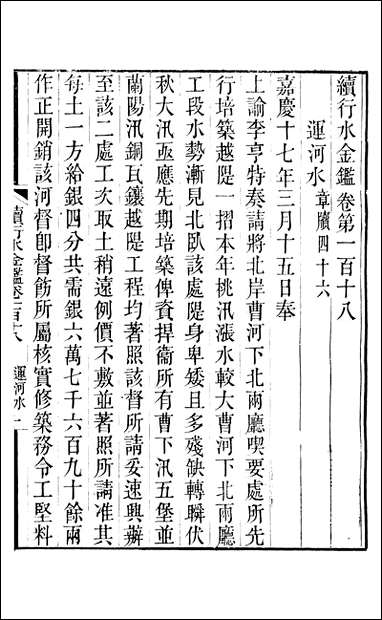 續行水金鑑卷第一百十八
運河水章牘四十六
嘉慶十七年三月十五日奉
上諭李亨特奏請將北岸曹河下北兩廳喫要處所先
行培築越隄一摺本年桃汛漲水較大曹河下北兩廳
工段水勢漸見北臥該處隄身卑矮且多殘缺轉瞬伏
秋大汛亟應先期培築俾資捍衞所有曹下汛五堡並
蘭陽汛銅瓦鑲越隄工程均著照該督所請妥速興辦
至該二處工次取土稍遠例價不敷並著照所請准其
每土一方給銀四分共需銀六萬七千六百九十餘兩
作正開銷該河督卽督飭所屬核實修築務令工堅料
續行水金鑑卷一百十八
運河水
一